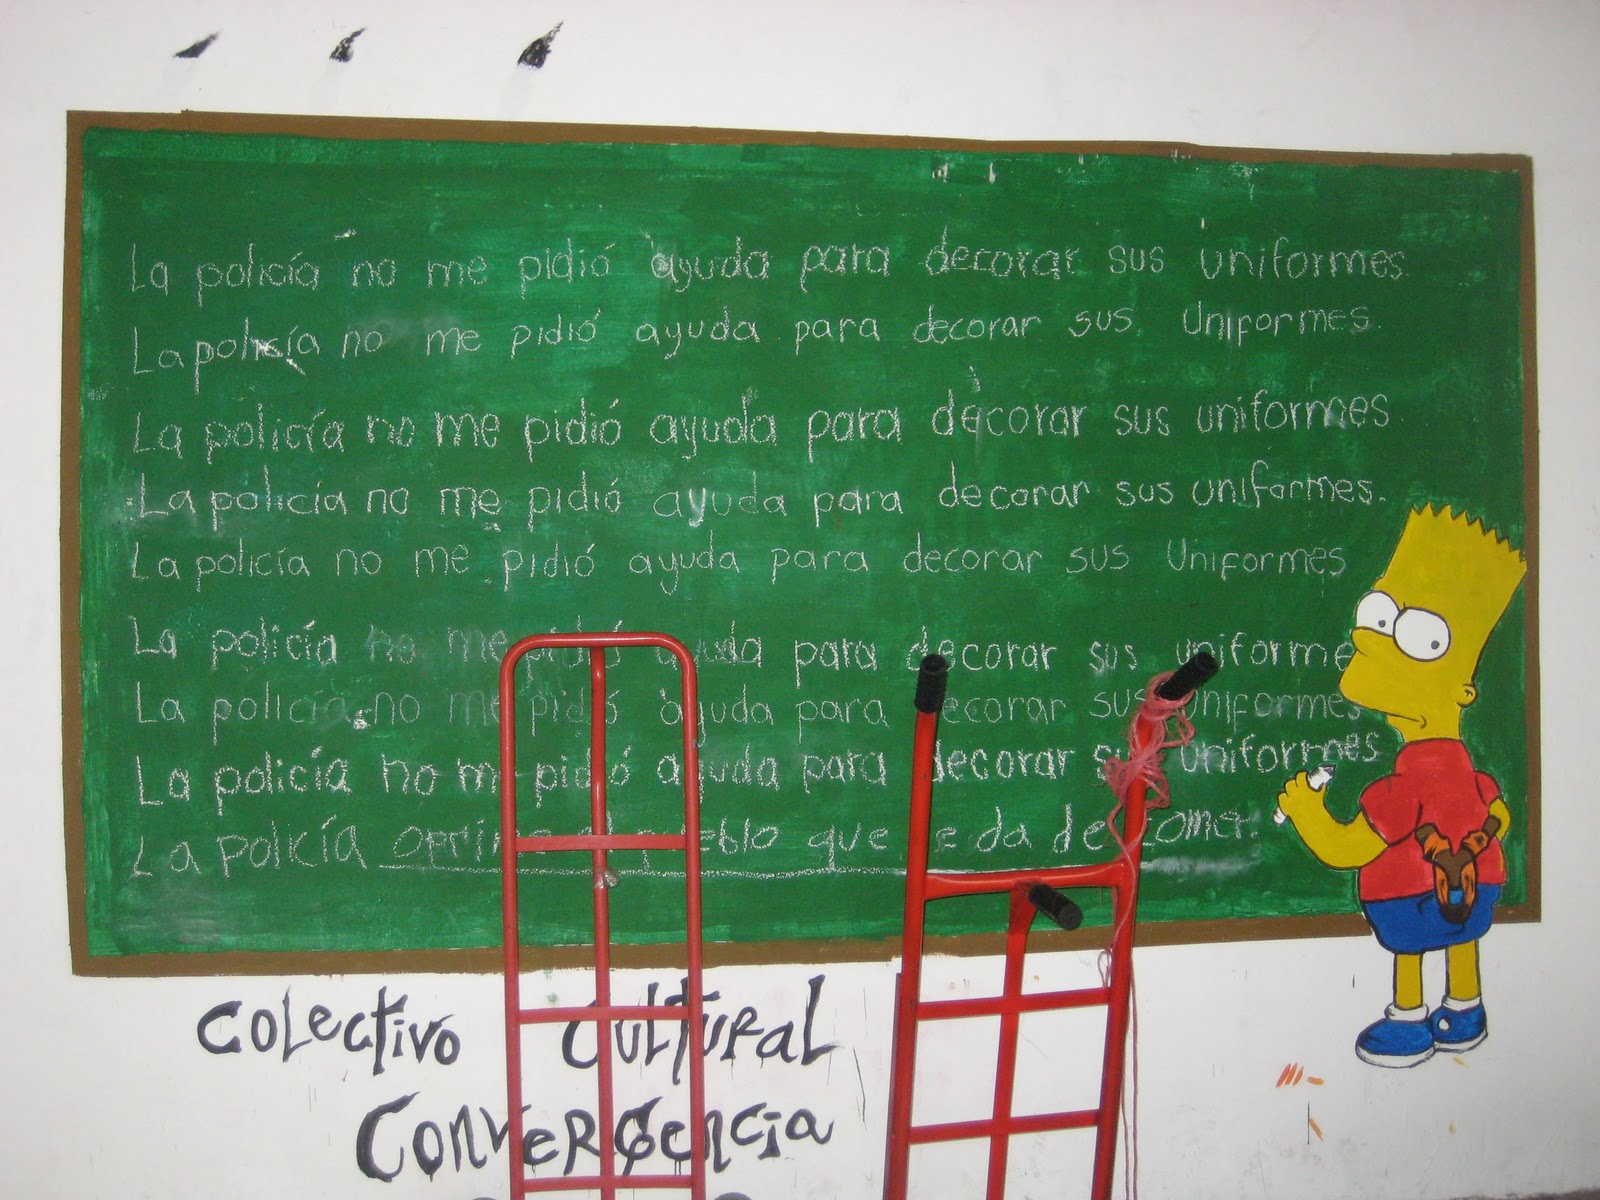 La policía no me pidió ayuda para decorar sus uniformes.
La policía no me pidió ayuda para decorar sus Uniformes.
La policía no me pidió ayuda para decorar sus uniformes
La policía no me pidió ayuda para decorar sus uniformes.
La policía no me pidió ayuda para decorar sus Uniformes
La policía no me pidió ayuda para decorar sus uniforme
La policía no me pidió ayuda para decorar sus uniformes
La policía no me pidió ayuda para decorar sus uniformes
La policía oprime al pueblo que le da de comer.
Colectivo Cultural
Convergencia